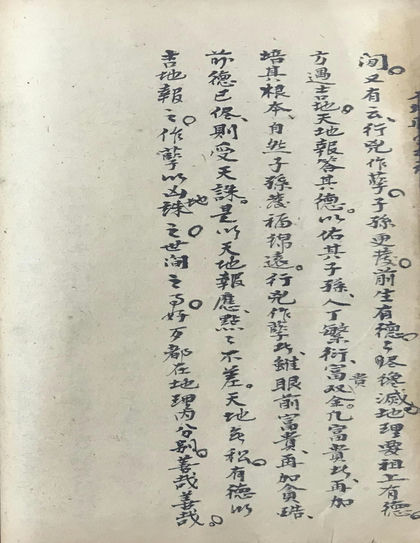 间又有云、行兇作孽子孫更发前生有德、德尽後滅地理要祖上有德
方遇吉地、天地報答其德。以佑其子孫、人丁繁衍、富貴双全。凡富貴者、再加
培其根本、自然子孫发福綿遠。行兇作孽者、雖眼前富貴、再加貪
前德已侭、則受天誅。是以天地報應、點〻不差。天地無私、有德以
吉地報之、作孽以凶地誅之、世间之好歹都在地理内分别。善哉善哉。